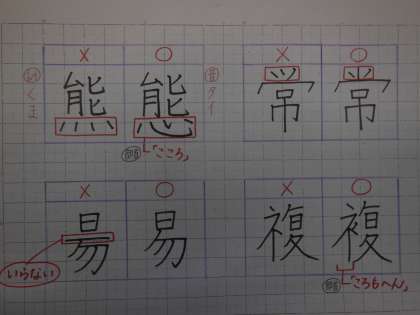 × ○ × ○
訓 くま 熊 態 音 タイ 常 常
部首 「こころ」
× ○ × ○
昜 易 複 複
いらない
部首 「ころもへん」